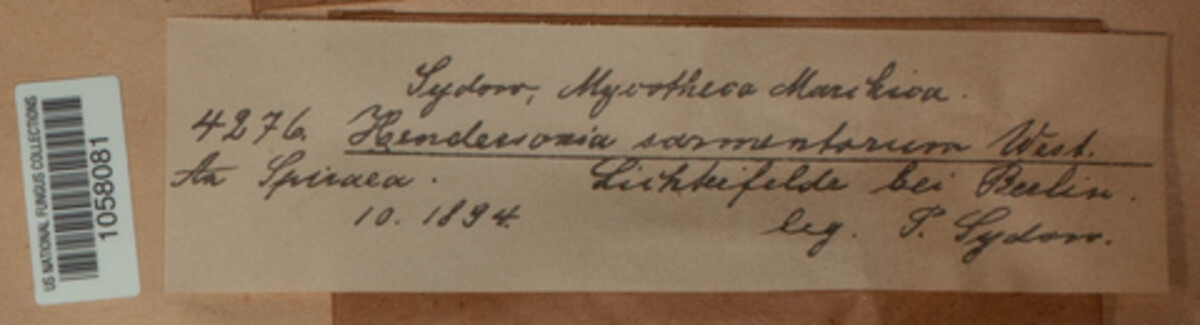 Sydow, Mycotheca Marchica.
4276. Hendersonia sarmentorum West.
An Spiraea. Lichterfelde bei Berlin.
10. 1894. leg. P. Sydow.
US NATIONAL FUNGUS COLLECTIONS
1058081